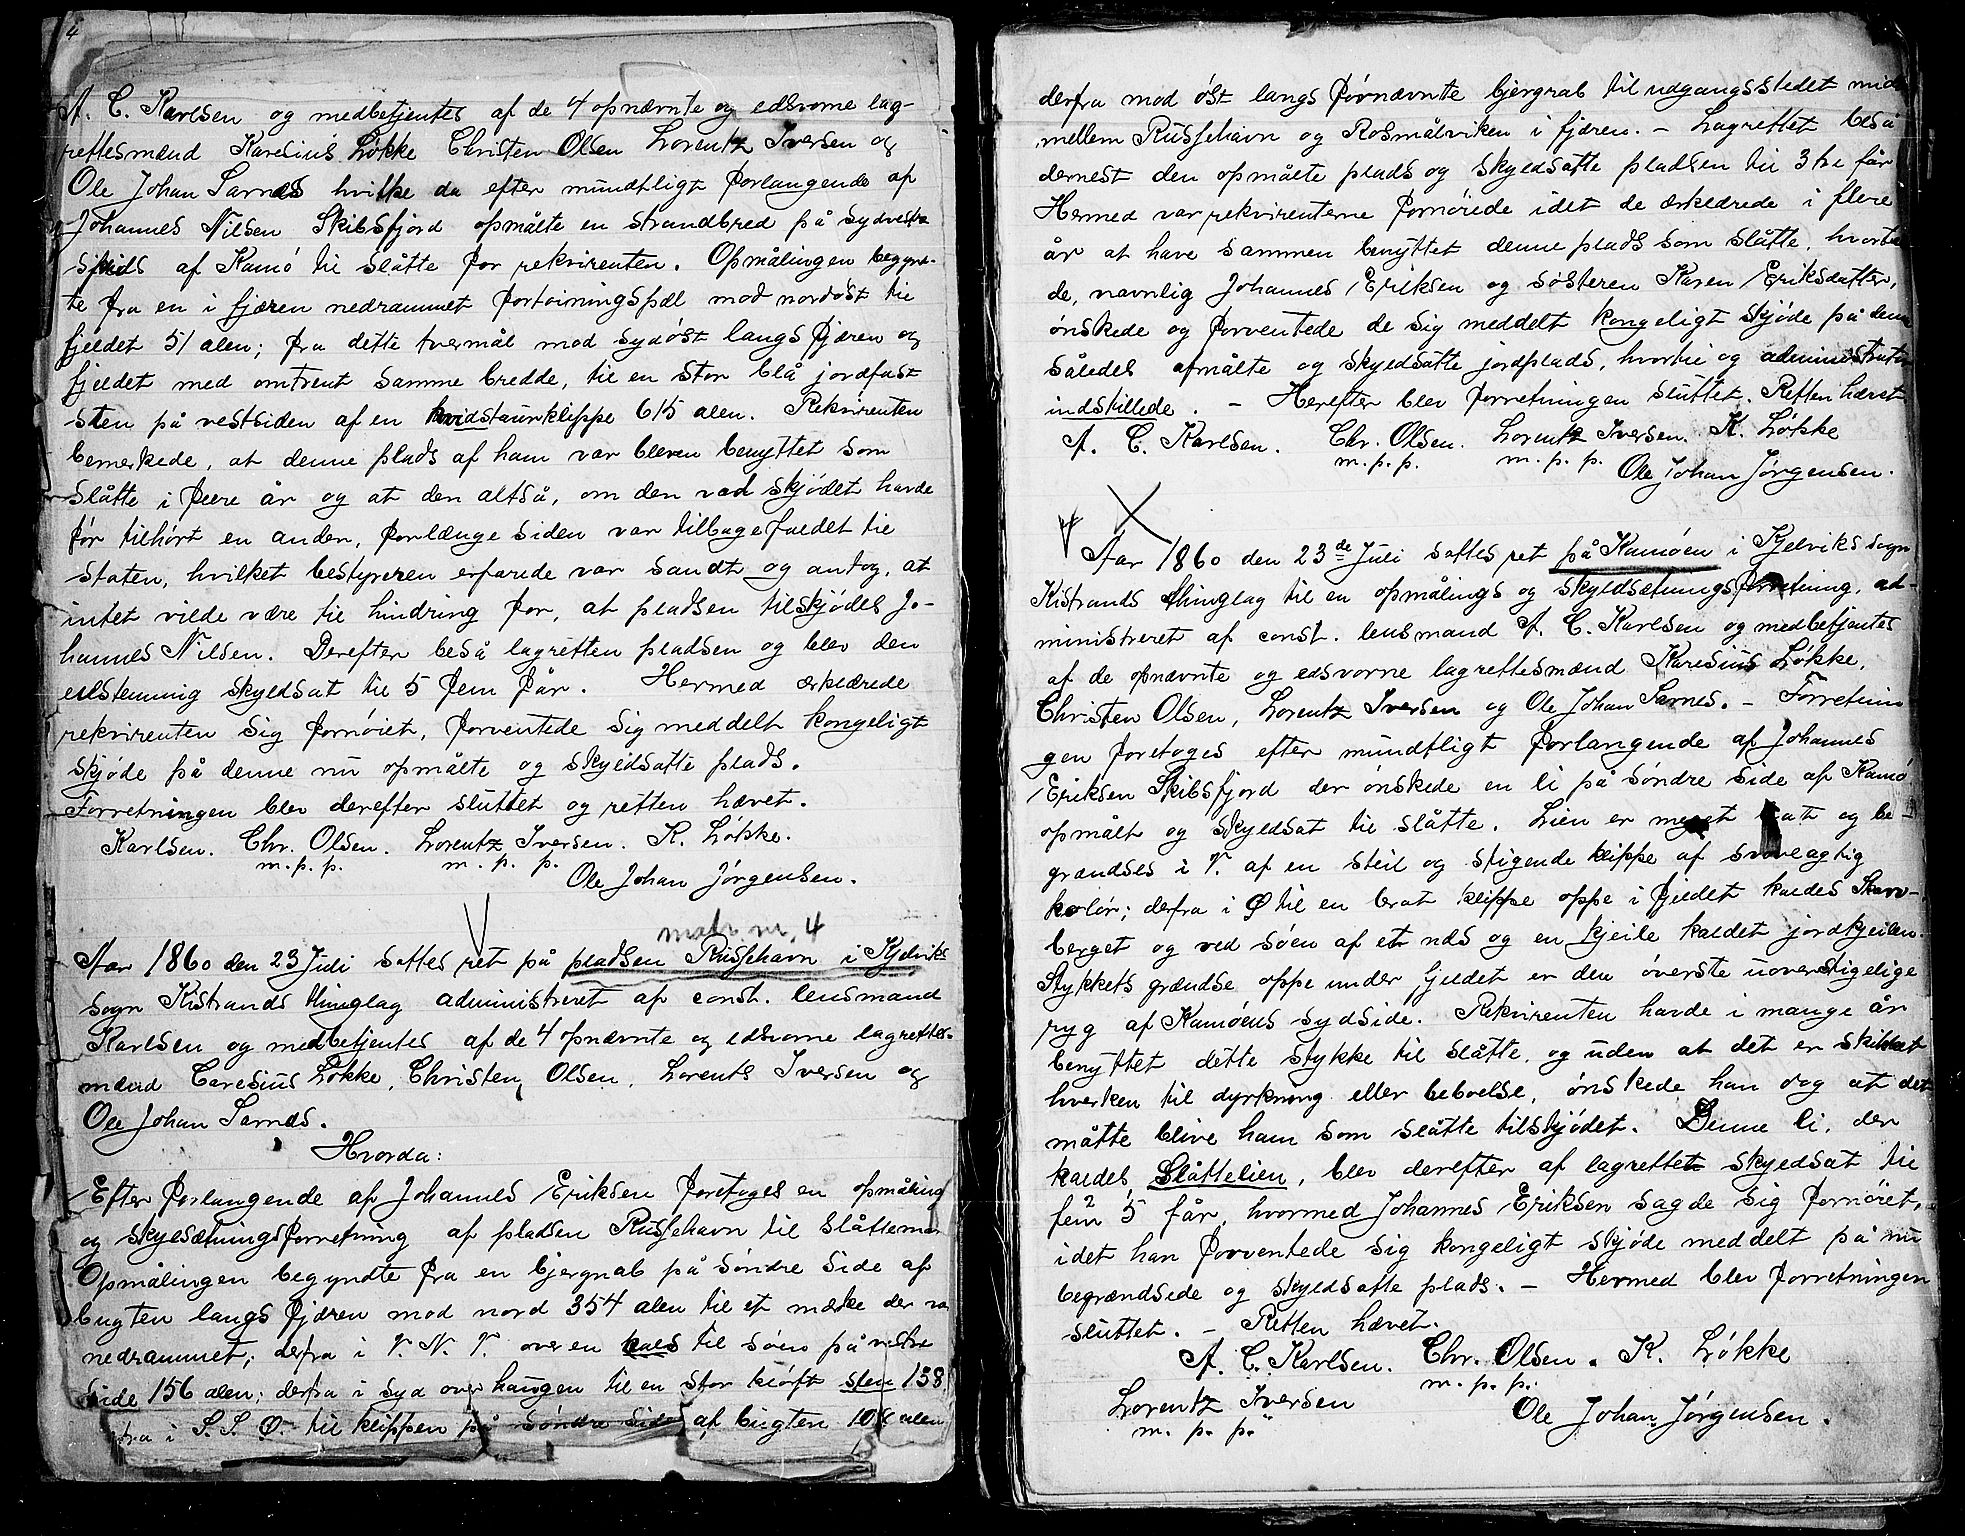 4
A. C. Karlsen og medbetjentes af de 4 opnævnte og edsvorne lag-
rettesmænd Karesius Løkke Christen Olsen Lorentz Iversen og
Ole Johan Sarnæs hvilke da efter mundtligt forlangende af
Johannes Nilsen Skibsfjord opmålte en strandbred på sydvestre
side af Kamø til slåtte for rekvirenten. Opmålingen begynd-
te fra en i fjæren nedrammet fortøiningspæl mod nordøst til
fjeldet 51 alen; fra dette tvermål mod sydøst langs fjæren og
fjeldet med omtrent samme bredde, til en stor blå jordfast
sten på vestsiden af en hvidstaurklippe 615 alen. Rekvirenten
bemerkede, at denne plads af ham var bleven benyttet som
slåtte i flere år og at den altså, om den ved skjødet havde
før tilhørt en anden, forlænge siden var tilbagefaldet til
staten, hvilket bestyreren erfarede var sandt og antog, at
intet vilde være til hindring for, at pladsen tilskjødes Jo-
hannes Nilsen. Derefter beså lagretten pladsen og blev den
eilstemmig skyldsat til 5 fem får. Hermed erklærede
rekvirenten sig fornøiet, forventede sig meddelt kongeligt
skjøde på denne nu opmålte og skyldsatte plads.
Forretningen blev derefter sluttet og retten hævet.
Karlsen. Chr. Olsen. Lorentz Iversen. K. Løkke.
m. p. p. m. p. p.
Ole Johan Jørgensen.
matr. nr. 4
Aar 1860 den 23 Juli sattes ret på pladsen Russehavn i Kjelviks
sogn Kistrands thinglag administreret af const. lensmand
Karlsen og medbetjentes af de 4 opnævnte og edsvorne lagrettes-
mænd Caresius Løkke, Christen Olsen, Lorents Iversen og
Ole Johan Sarnæs.
Hvorda:
Efter forlangende af Johannes Eriksen foretoges en opmåling
og skyldsætningsforretning af pladsen Russehavn til slåttemar
Opmålingen begyndte fra en bjergnab på søndre side af
bugten langs fjæren mod nord 354 alen til et mærke der var
nedrammet; derfra i V. N. V. over en hals til søen på vestre
side 156 alen; derfra i syd over haugen til en stor kløft sten 158
fra i S. S. Ø. til klippen på søndre side af bugten 108 alen
derfra mod øst langs førnævnte bjergrab til udgangsstedet midt
mellem Russehavn og Rosmålviken i fjæren. - Lagrettet beså
dernest den opmålte plads og skyldsatte pladsen til 3 tre får
Hermed var rekvirenterne fornøiede idet de erklærede i flere
år at have sammen benyttet denne plads som slåtte, hvorta
de, navnlig Johannes Eriksen og søsteren Karen Eriksdatter,
ønskede og forventede de sig meddelt kongeligt skjøde på denne
således opmålte og skyldsatte jordplads, hvortil og administrator
indstillede. - Herefter blev forretningen sluttet. Retten hævet.
A. C. Karlsen. Chr. Olsen. Lorentz Iversen. K. Løkke
m. p. p. m. p. p.
Ole Johan Jørgensen.
Aar 1860 den 23de Juli sattes ret på Kamøen i Kjelviks sogn
Kistrands thinglag til en opmålings og skyldsætningsforretning, ad-
ministreret af const. lensmand A. C. Karlsen og medbetjentes
af de opnævnte og edsvorne lagrettesmænd Karesius Løkke,
Christen Olsen, Lorentz Iversen og Ole Johan Sarnes. - Forretnin
gen foretoges efter mundtligt forlangende af Johannes
Eriksen Skibsfjord der ønskede en li på søndre side af Kamø
opmålt og skyldsat til slåtte. Lien er meget brat og be-
grændses i V. af en steil og stigende klippe af svovlagtig
kolør; derfra i Ø til en brat klippe oppe i fjeldet kaldes Skarv-
berget og ved søen af et næs og en kjeile kaldet jordkjeilen.
Stykkets grændse oppe under fjeldet er den øverste uoverstigelige
ryg af Kamøens sydside. Rekvirenten havde i mange år
benyttet dette stykke til slåtte, og uden at det er skikket
hverken til dyrkning eller beboelse, ønskede han dog at det
måtte blive ham som slåtte tilskjødet. Denne li, der
kaldes Slåttelien, blev derefter af lagrettet skyldsat til
fem 5 får, hvormed Johannes Eriksen sagde sig fornøiet,
idet han forventede sig kongeligt skjøde meddelt på nu
begrændsede og skyldsatte plads. - Hermed blev forretningen
sluttet. - Retten hævet.
A. C. Karlsen. Chr. Olsen. K. Løkke
m. p. p.
Lorentz Iversen
m. p. p.
Ole Johan Jørgensen.